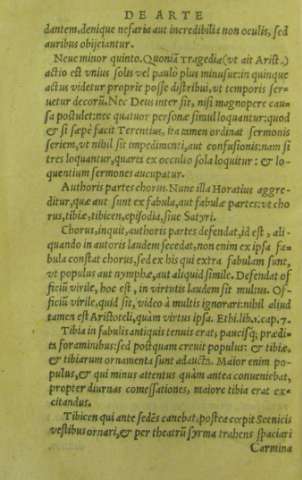 DE ARTE
dantem, denique nefaria aut incredibilia non oculis, sed
auribus obijciantur.
Neue minor quinto. Quoniã Tragedia (vt ait Arist.)
actio est vnius solis vel paulò plus minusue: in quinque
actus videtur proprie posse distribui, vt temporis ser-
uetur decorũ. Nec Deus inter sit, nisi magnopere cau-
sa postulet: nec quatuor personæ simul loquantur: quod
& si sæpè facit Terentius, ita tamen ordinat sermonis
seriem, vt nihil sit impedimenti, aut confusionis: nam si
tres loquantur, quarta ex occulto sola loquitur: & lo-
quentium sermones aucupatur.
Authoris partes chorus. Nunc illa Horatius aggre-
ditur, quæ aut sunt ex fabula, aut fabulæ partes: vt cho
rus, tibiæ, tibicen, episodia, siue Satyri.
Chorus, inquit, authoris partes defendat, id est, ali-
quando in autoris laudem secedat, non enim ex ipsa fa-
bula constat chorus, sed ex his qui extra fabulam sunt,
vt populus aut nymphæ, aut aliquid simile. Defendat of
ficiũ virile, hoc est, in virtutis laudem sit multus. Of-
ficiũ virile, quid sit, video à multis ignorari: nihil aliud
tamen est Aristoteli, quàm virtus ipsa. Ethi. lib. 1. cap. 7.
Tibia in fabulis antiquis tenuis erat, paucisq; prædi-
ta foraminibus: sed postquam creuit populus: & tibiæ,
& tibiarum ornamenta sunt adaucta. Maior enim po-
pulus, & qui minus attentus quàm antea conueniebat,
propter diurnas comessationes, maiore tibia erat ex-
citandus.
Tibicen qui ante sedẽs canebat, postea cœpit Scenicis
vestibus ornari, & per theatrũ syrma trahens spaciari
Carmina